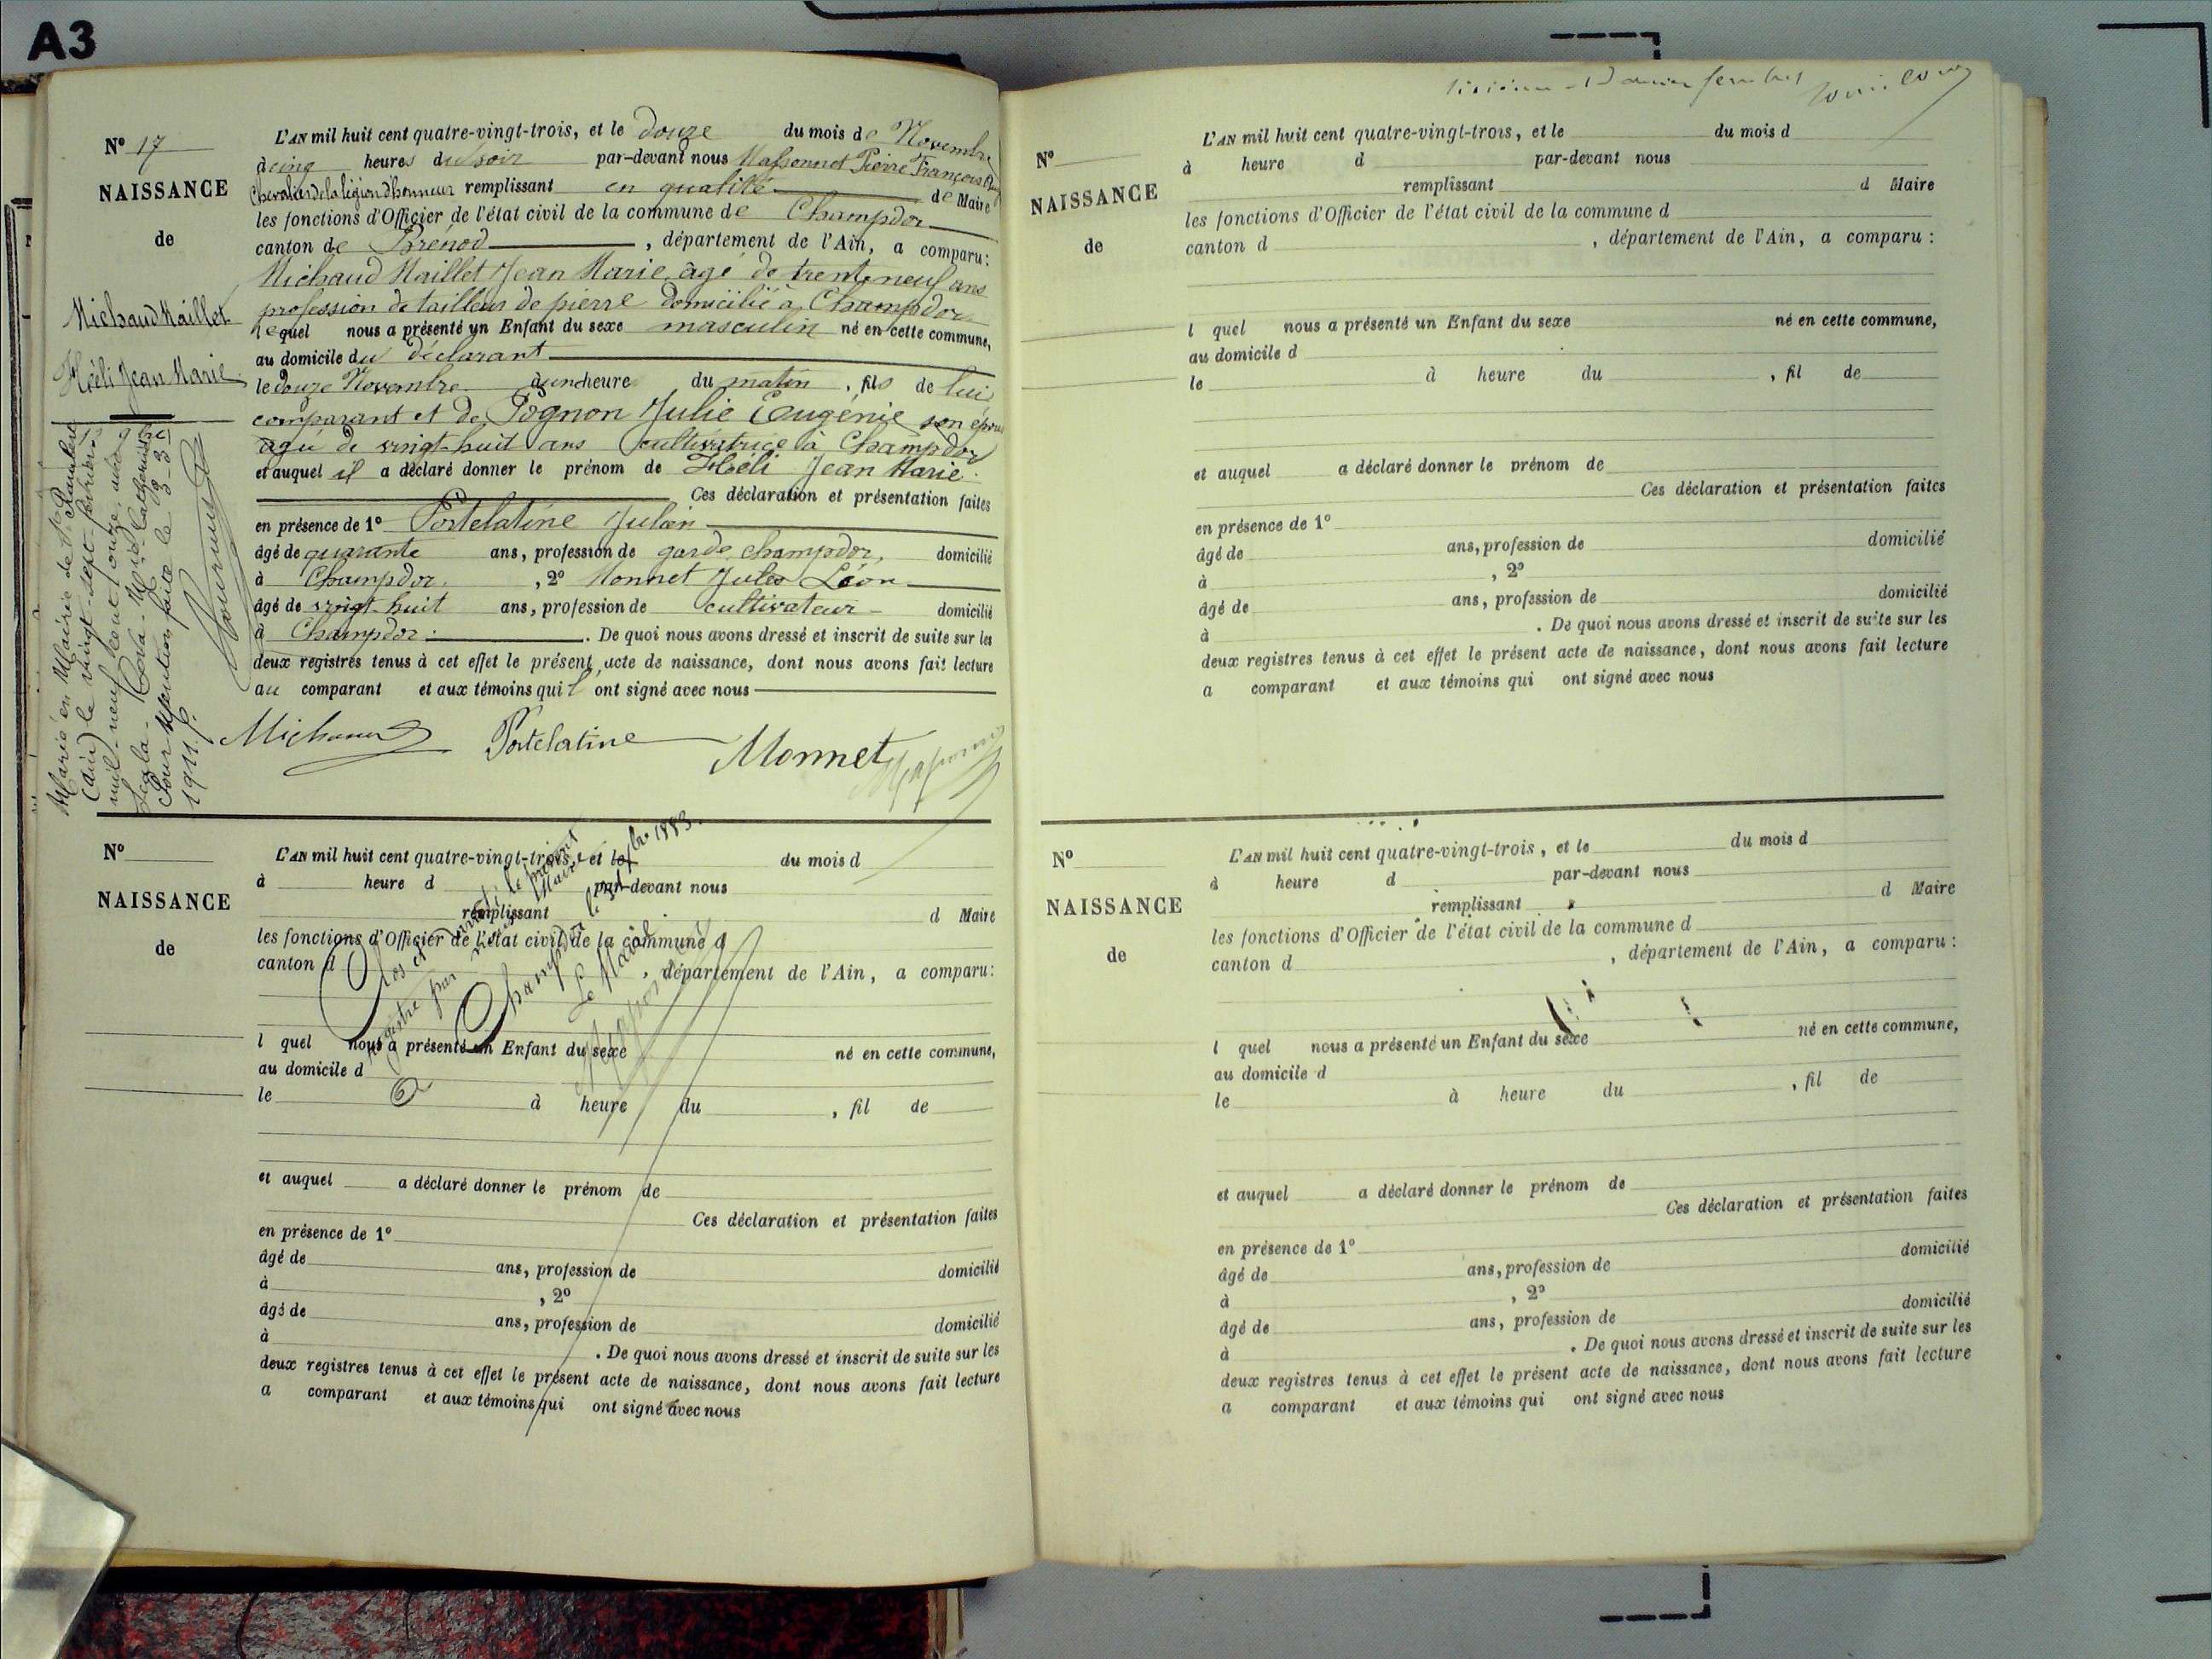 A3
N° 17
NAISSANCE
de
Michaud Maillet
Héli Jean Marie
L'AN mil huit cent quatre-vingt-trois, et le douze du mois de Novembre
à cinq heures du soir par-devant nous Massonnet Pierre François
Chevalier de la légion d'honneur remplissant en qualité de Maire
les fonctions d'Officier de l'état civil de la commune de Champdor
canton de Brénod, département de l'Ain, a comparu:
Michaud Maillet Jean Marie, âgé de trente neuf ans
profession de tailleur de pierre domicilié à Champdor
lequel nous a présenté un Enfant du sexe masculin né en cette commune,
au domicile du déclarant
le douze Novembre à une heure du matin, fils de lui
comparant et de Pognon Julie Eugénie son épouse
agée de vingt-huit ans cultivatrice à Champdor
et auquel il a déclaré donner le prénom de Héli Jean Marie.
Ces déclaration et présentation faites
en présence de 1° Portelatine Julien
âgé de quarante ans, profession de garde champdor, domicilié
à Champdor, 2° Monnet Jules Léon
âgé de vingt-huit ans, profession de cultivateur domicilié
à Champdor. De quoi nous avons dressé et inscrit de suite sur les
deux registres tenus à cet effet le présent acte de naissance, dont nous avons fait lecture
au comparant et aux témoins qui l'ont signé avec nous
Michaud Portelatine Monnet Massonnet
Marié en Mairie de St Rambert
(ain) le vingt-sept février
mil-neuf cent onze, avec
Pour Mention faite le 3-3-
1911.
N°
NAISSANCE
de
L'AN mil huit cent quatre-vingt-trois, et le du mois d
à heure d par-devant nous
remplissant d Maire
les fonctions d'Officier de l'état civil de la commune d
canton d , département de l'Ain, a comparu:
l quel nous a présenté un Enfant du sexe né en cette commune,
au domicile d
le à heure du , fil de
et auquel a déclaré donner le prénom de
Ces déclaration et présentation faites
en présence de 1°
âgé de ans, profession de domicilié
à , 2°
âgé de ans, profession de domicilié
à . De quoi nous avons dressé et inscrit de suite sur les
deux registres tenus à cet effet le présent acte de naissance, dont nous avons fait lecture
a comparant et aux témoins qui ont signé avec nous
Clos et arrêté le présent
registre par nous Maire
Champdor le 1883.
Le Maire
Massonnet
N°
NAISSANCE
de
L'AN mil huit cent quatre-vingt-trois, et le du mois d
à heure d par-devant nous
remplissant d Maire
les fonctions d'Officier de l'état civil de la commune d
canton d , département de l'Ain, a comparu:
l quel nous a présenté un Enfant du sexe né en cette commune,
au domicile d
le à heure du , fil de
et auquel a déclaré donner le prénom de
Ces déclaration et présentation faites
en présence de 1°
âgé de ans, profession de domicilié
à , 2°
âgé de ans, profession de domicilié
à . De quoi nous avons dressé et inscrit de suite sur les
deux registres tenus à cet effet le présent acte de naissance, dont nous avons fait lecture
a comparant et aux témoins qui ont signé avec nous
N°
NAISSANCE
de
L'AN mil huit cent quatre-vingt-trois, et le du mois d
à heure d par-devant nous
remplissant d Maire
les fonctions d'Officier de l'état civil de la commune d
canton d , département de l'Ain, a comparu:
l quel nous a présenté un Enfant du sexe né en cette commune,
au domicile d
le à heure du , fil de
et auquel a déclaré donner le prénom de
Ces déclaration et présentation faites
en présence de 1°
âgé de ans, profession de domicilié
à , 2°
âgé de ans, profession de domicilié
à . De quoi nous avons dressé et inscrit de suite sur les
deux registres tenus à cet effet le présent acte de naissance, dont nous avons fait lecture
a comparant et aux témoins qui ont signé avec nous